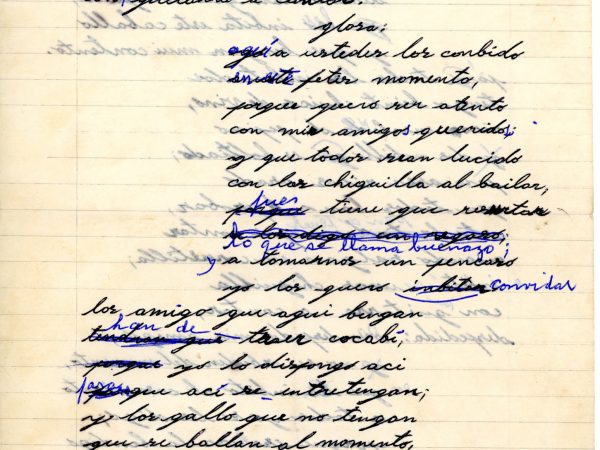 glosa:
aquí a ustedes los conbido
en este feter momento,
porque quero ser atento
con mis amigos queridos;
y que todos sean lucido
con los chiquilla al bailar,
pues tiene que
lo que se llama buenazo;
y a tomarnos un pencaso
yo los quero inbitar convidar
los amigo que aqui bengan
han de traer cocabí,
porque yo lo disfongo aci
para que ací se entretengan;
y los gallo que no tengan
que se ballan al momento,